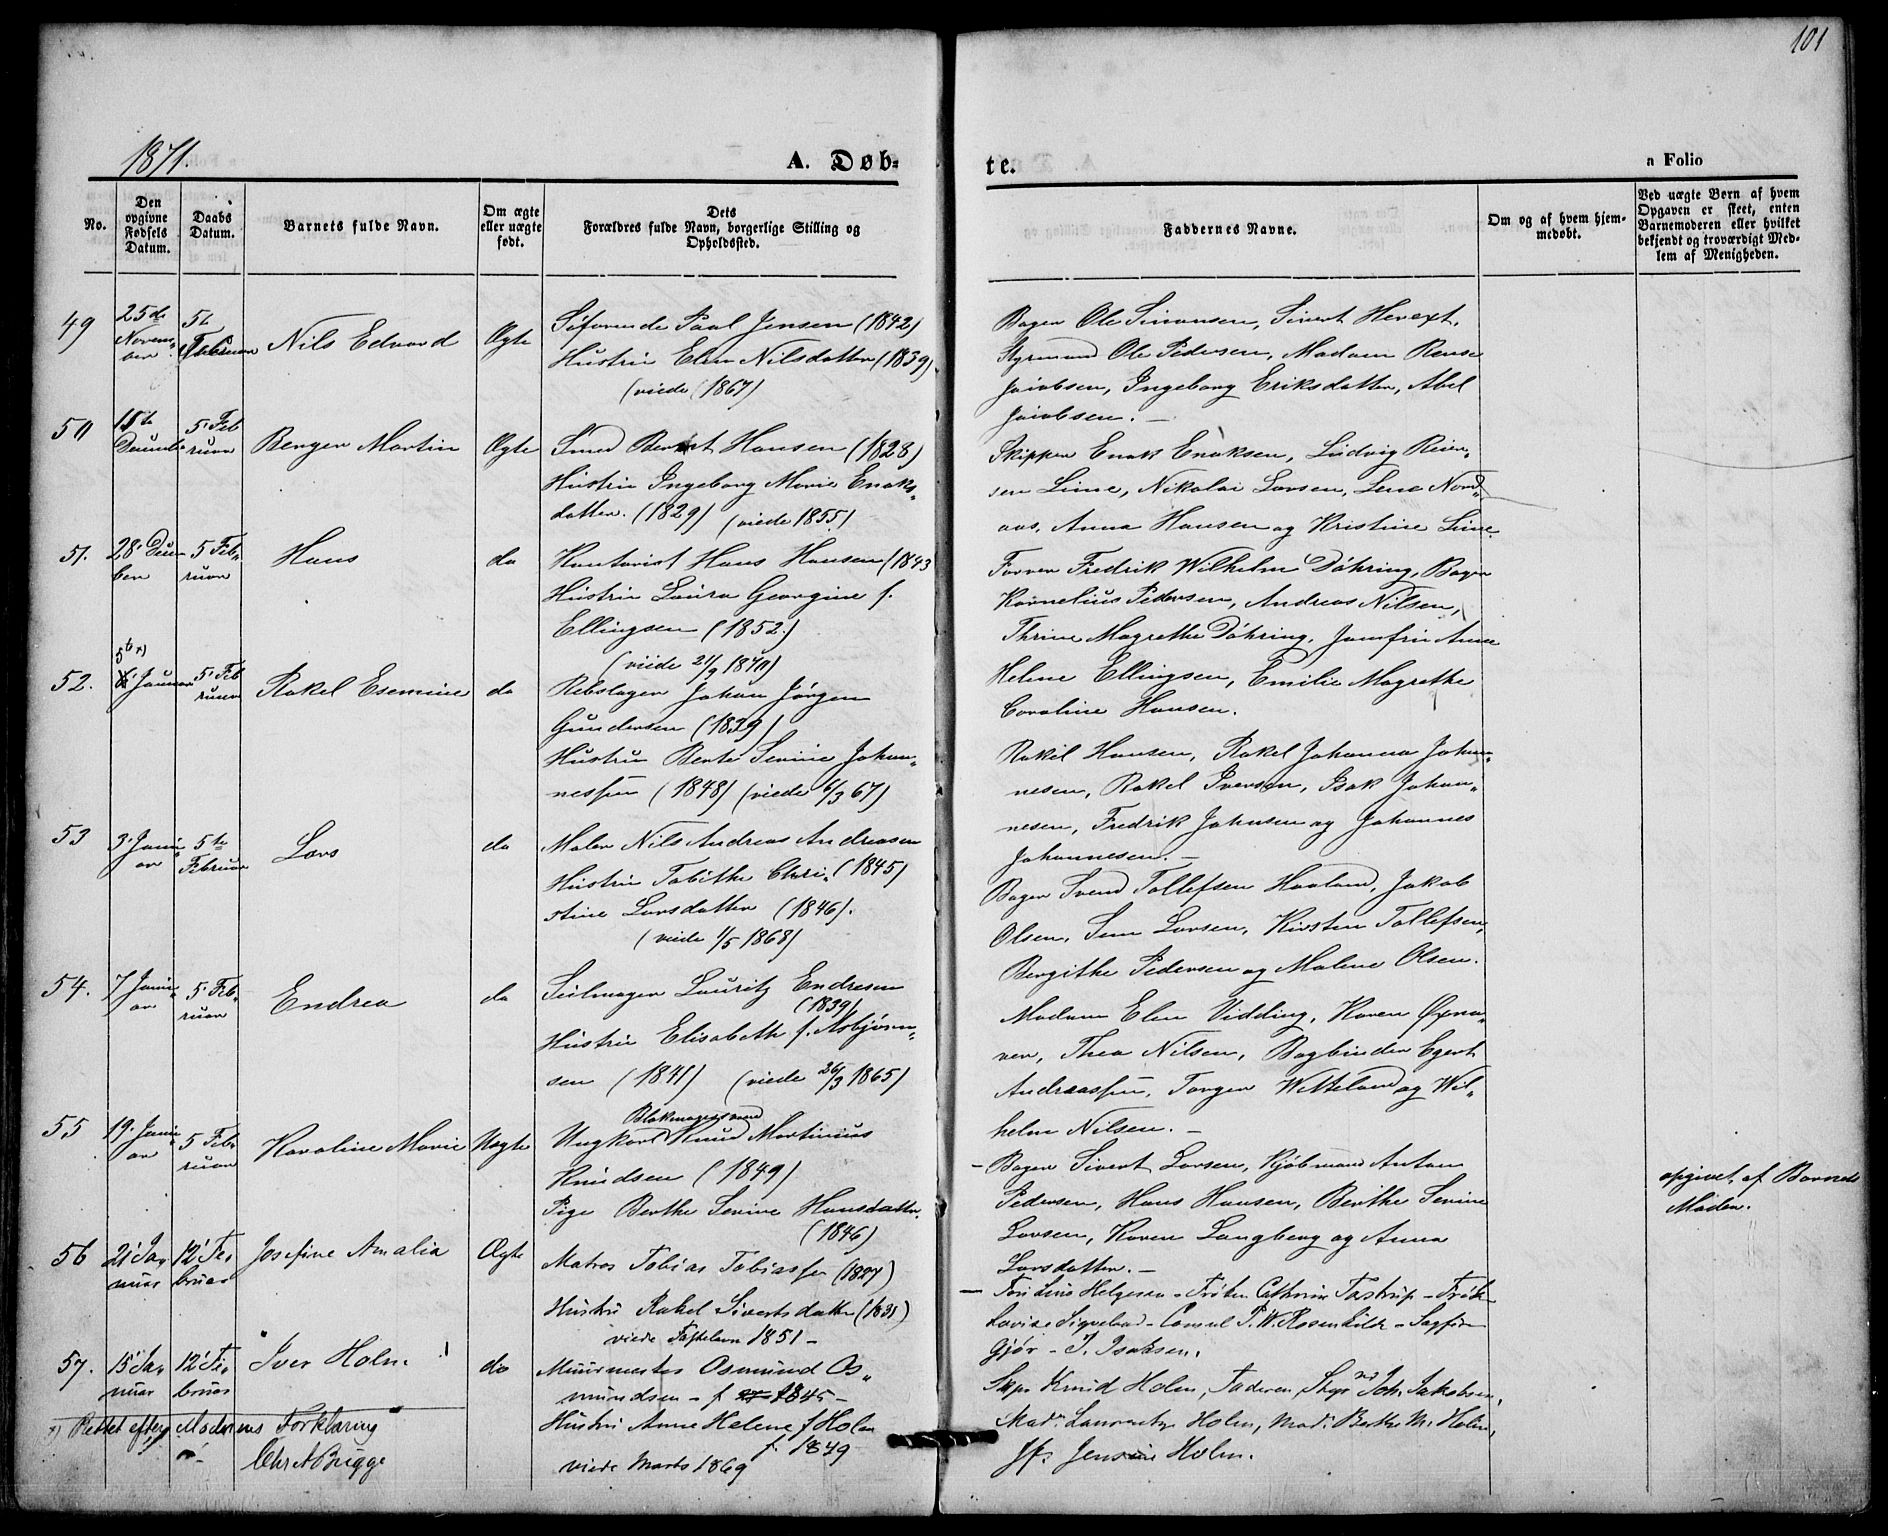 101
1871.
A. Døb=
te.
a Folio
No.
Den opgivne Fødsels Datum.
Daabs Datum.
Barnets fulde Navn.
Om ægte eller uægte født.
Dets Forældres fulde Navn, borgerlige Stilling og Opholdssted.
Faddernes Navne.
Om og af hvem hjemmedøbt.
Ved uægte Børn af hvem Opgaven er skeet, enten Barnemoderen eller hvilket bekjendt og troværdigt Medlem af Menigheden.
49
25de Novem„ber
5te Februar
Nils Edvard
Ægte
Søfarende Paul Jensen (1842)
Hustru Elen Nilsdatter (1839)
(viede 1867)
Bager Ole Simonsen, Sivert Herext,
Styrmand Ole Pedersen, Madam Rense
Jacobsen, Ingeborg Eriksdatter, Abel
Jacobsen. —
50
15te
5' Feb
ruar
Berger Martin
Ægte
Smed Berent Hansen (1828)
Hustru Ingeborg Marie Enoks„
datter. (1829) (viede 1855)
Skipper Enok Enoksen, Ludvig Reier„
sen Lime, Nikolai Larsen, Lene Nord„
aas, Anna Hansen og Kristine Lime.
51.
28'
5 Feb„
ruar
Hans
do
Kontorist Hans Hansen (1843
Hustru Laura Georgine f.
Ellingsen (1852.)
(viede 21/9 1870)
Farver Fredrik Wilhelm Døhring, Bager
Kornelius Pedersen, Andreas Nilsen,
Thrine Magrethe Døhring, Jomfru Anne
Helene Ellingsen, Emilie Magrethe
Caroline Hansen.
52.
5te x)
Januar
5' Feb
ruar
Rakel Esemine
do
Rebslager Johan Jørgen
Gundersen (1839)
Hustru Berte Serine Johan„
nessen (1848) (viede 6/3 67)
Rakel Hansen, Rakel Johanna Johan„
nesen, Rakel Iversen, Isak Johan„
nesen, Fredrik Johnsen og Johannes
Johannesen. —
53
3' Janu„
ar
5te
Februar
Lars
do
Maler Nils Andreas Andreasen
Hustru Tabithe Chri„ (1845)
stine Larsdatter (1846).
(viede 1/5 1868)
Bager Svend Tollefsen Haaland, Jakob
Olsen, Sem Larsen, Kirsten Tollefsen,
Bergithe Pedersen og Malene Olsen.
54.
7 Janu„
ar
5' Feb„
ruar
Endrea
do
Seilmager Lauritz Endresen
(1839)
Hustru Elisabeth f. Asbjørn„
sen (1841) (viede 26/3 1865)
Madam Elen Vidding, Karen Øxna„
ven, Thea Nilsen, Bogbinder Egert
Andreassen, Torger Wetteland og Wil„
helm Nilsen. —
55
19. Janu„
ar
5 Feb
ruar
Karoline Marie
Uægte
Blokmagersvend
Ungkarl Knud Martinius
Knudsen (1849)
Pige Berthe Serine Hansdatter.
(1846)
— Bager Sivert Larsen, Kjøbmand Anton
Pedersen, Hans Hansen, Berthe Serine
Larsen, Karen Langberg og Anna
Larsdatter. —
opgivet af Barnets
Moder.
56
21' Ja„
nuar
12' Fe„
bruar
Josefine Amalia
Ægte
Matros Tobias Tobiassen (1827)
Hustru Rakel Sivertsdatter (1831)
viede Fastelavn 1851 —
Helgesen - Frøken Cathrine Tastrup - Frøk
Lovise Sigveland - Consul P. W. Rosenkilde - Sagfører
Gjør - I. Isaksen.
57.
15' Ja„
nuar
12' Fe„
bruar
Iver Holm
do
Muurmester Osmund Os„
mundsen - f 1845 -
Hustru Anne Helene f Holm
f. 1849
viede Marts 1869
Skpr Knud Holm, Faderen, Skpr Joh. Jakobsen,
Mad. Laurentze Holm, Mad. Berthe M. Holm,
Jfr. Jensine Holm.
x) Rettet efter Moderens Forklaring
Chr A Brigge